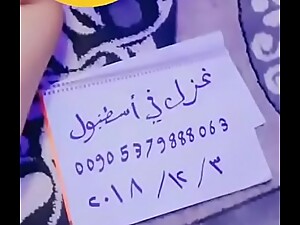 غزل في أسطنبول
00905379888063
٢٠١٨ / ١٢ / ٣